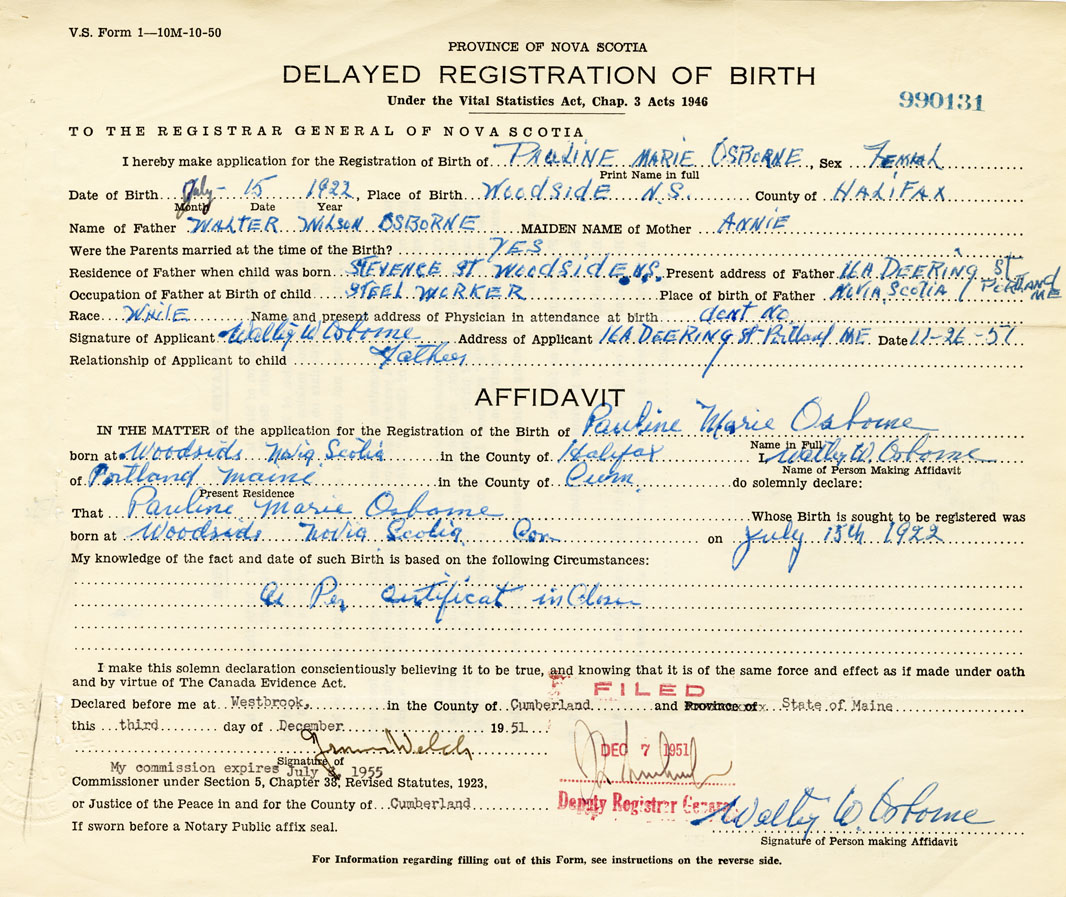 V.S. Form 1—10M-10-50
PROVINCE OF NOVA SCOTIA
DELAYED REGISTRATION OF BIRTH
Under the Vital Statistics Act, Chap. 3 Acts 1946
990131
TO THE REGISTRAR GENERAL OF NOVA SCOTIA
I hereby make application for the Registration of Birth of PAULINE MARIE OSBORNE, Sex
Print Name in full
Date of Birth July - 15 1922, Place of Birth WOODSIDE N.S. County of HALIFAX
Month Date Year
Name of Father WALTER WILSON OSBORNE MAIDEN NAME of Mother ANNIE
Were the Parents married at the time of the Birth? YES
Residence of Father when child was born STEVENCE ST WOODSIDE N.S. Present address of Father DEERING ST PORTLAND ME
Occupation of Father at Birth of child STEEL WORKER Place of birth of Father NOVIA SCOTIA
Race Name and present address of Physician in attendance at birth dont No
Signature of Applicant W Osborne Address of Applicant DEERING St Portland ME Date 11-26-51
Relationship of Applicant to child Father
AFFIDAVIT
IN THE MATTER of the application for the Registration of the Birth of Pauline Marie Osborne
Name in Full
born at Woodside Novia Scotia in the County of Halifax I, W. Osborne
Name of Person Making Affidavit
of Portland Maine in the County of Cum. do solemnly declare:
Present Residence
That Pauline Marie Osborne Whose Birth is sought to be registered was
born at Woodside Novia Scotia on July 15th 1922
My knowledge of the fact and date of such Birth is based on the following Circumstances:
As Per Certificat in Closen
I make this solemn declaration conscientiously believing it to be true, and knowing that it is of the same force and effect as if made under oath
and by virtue of The Canada Evidence Act.
FILED
Declared before me at Westbrook, in the County of Cumberland and Province of State of Maine
this third day of December 1951
DEC 7 1951
Welch
Signature of
My commission expires July 1955
Commissioner under Section 5, Chapter 38, Revised Statutes, 1923,
or Justice of the Peace in and for the County of Cumberland
Deputy Registrar General
W. Osborne
If sworn before a Notary Public affix seal.
Signature of Person making Affidavit
For Information regarding filling out of this Form, see instructions on the reverse side.